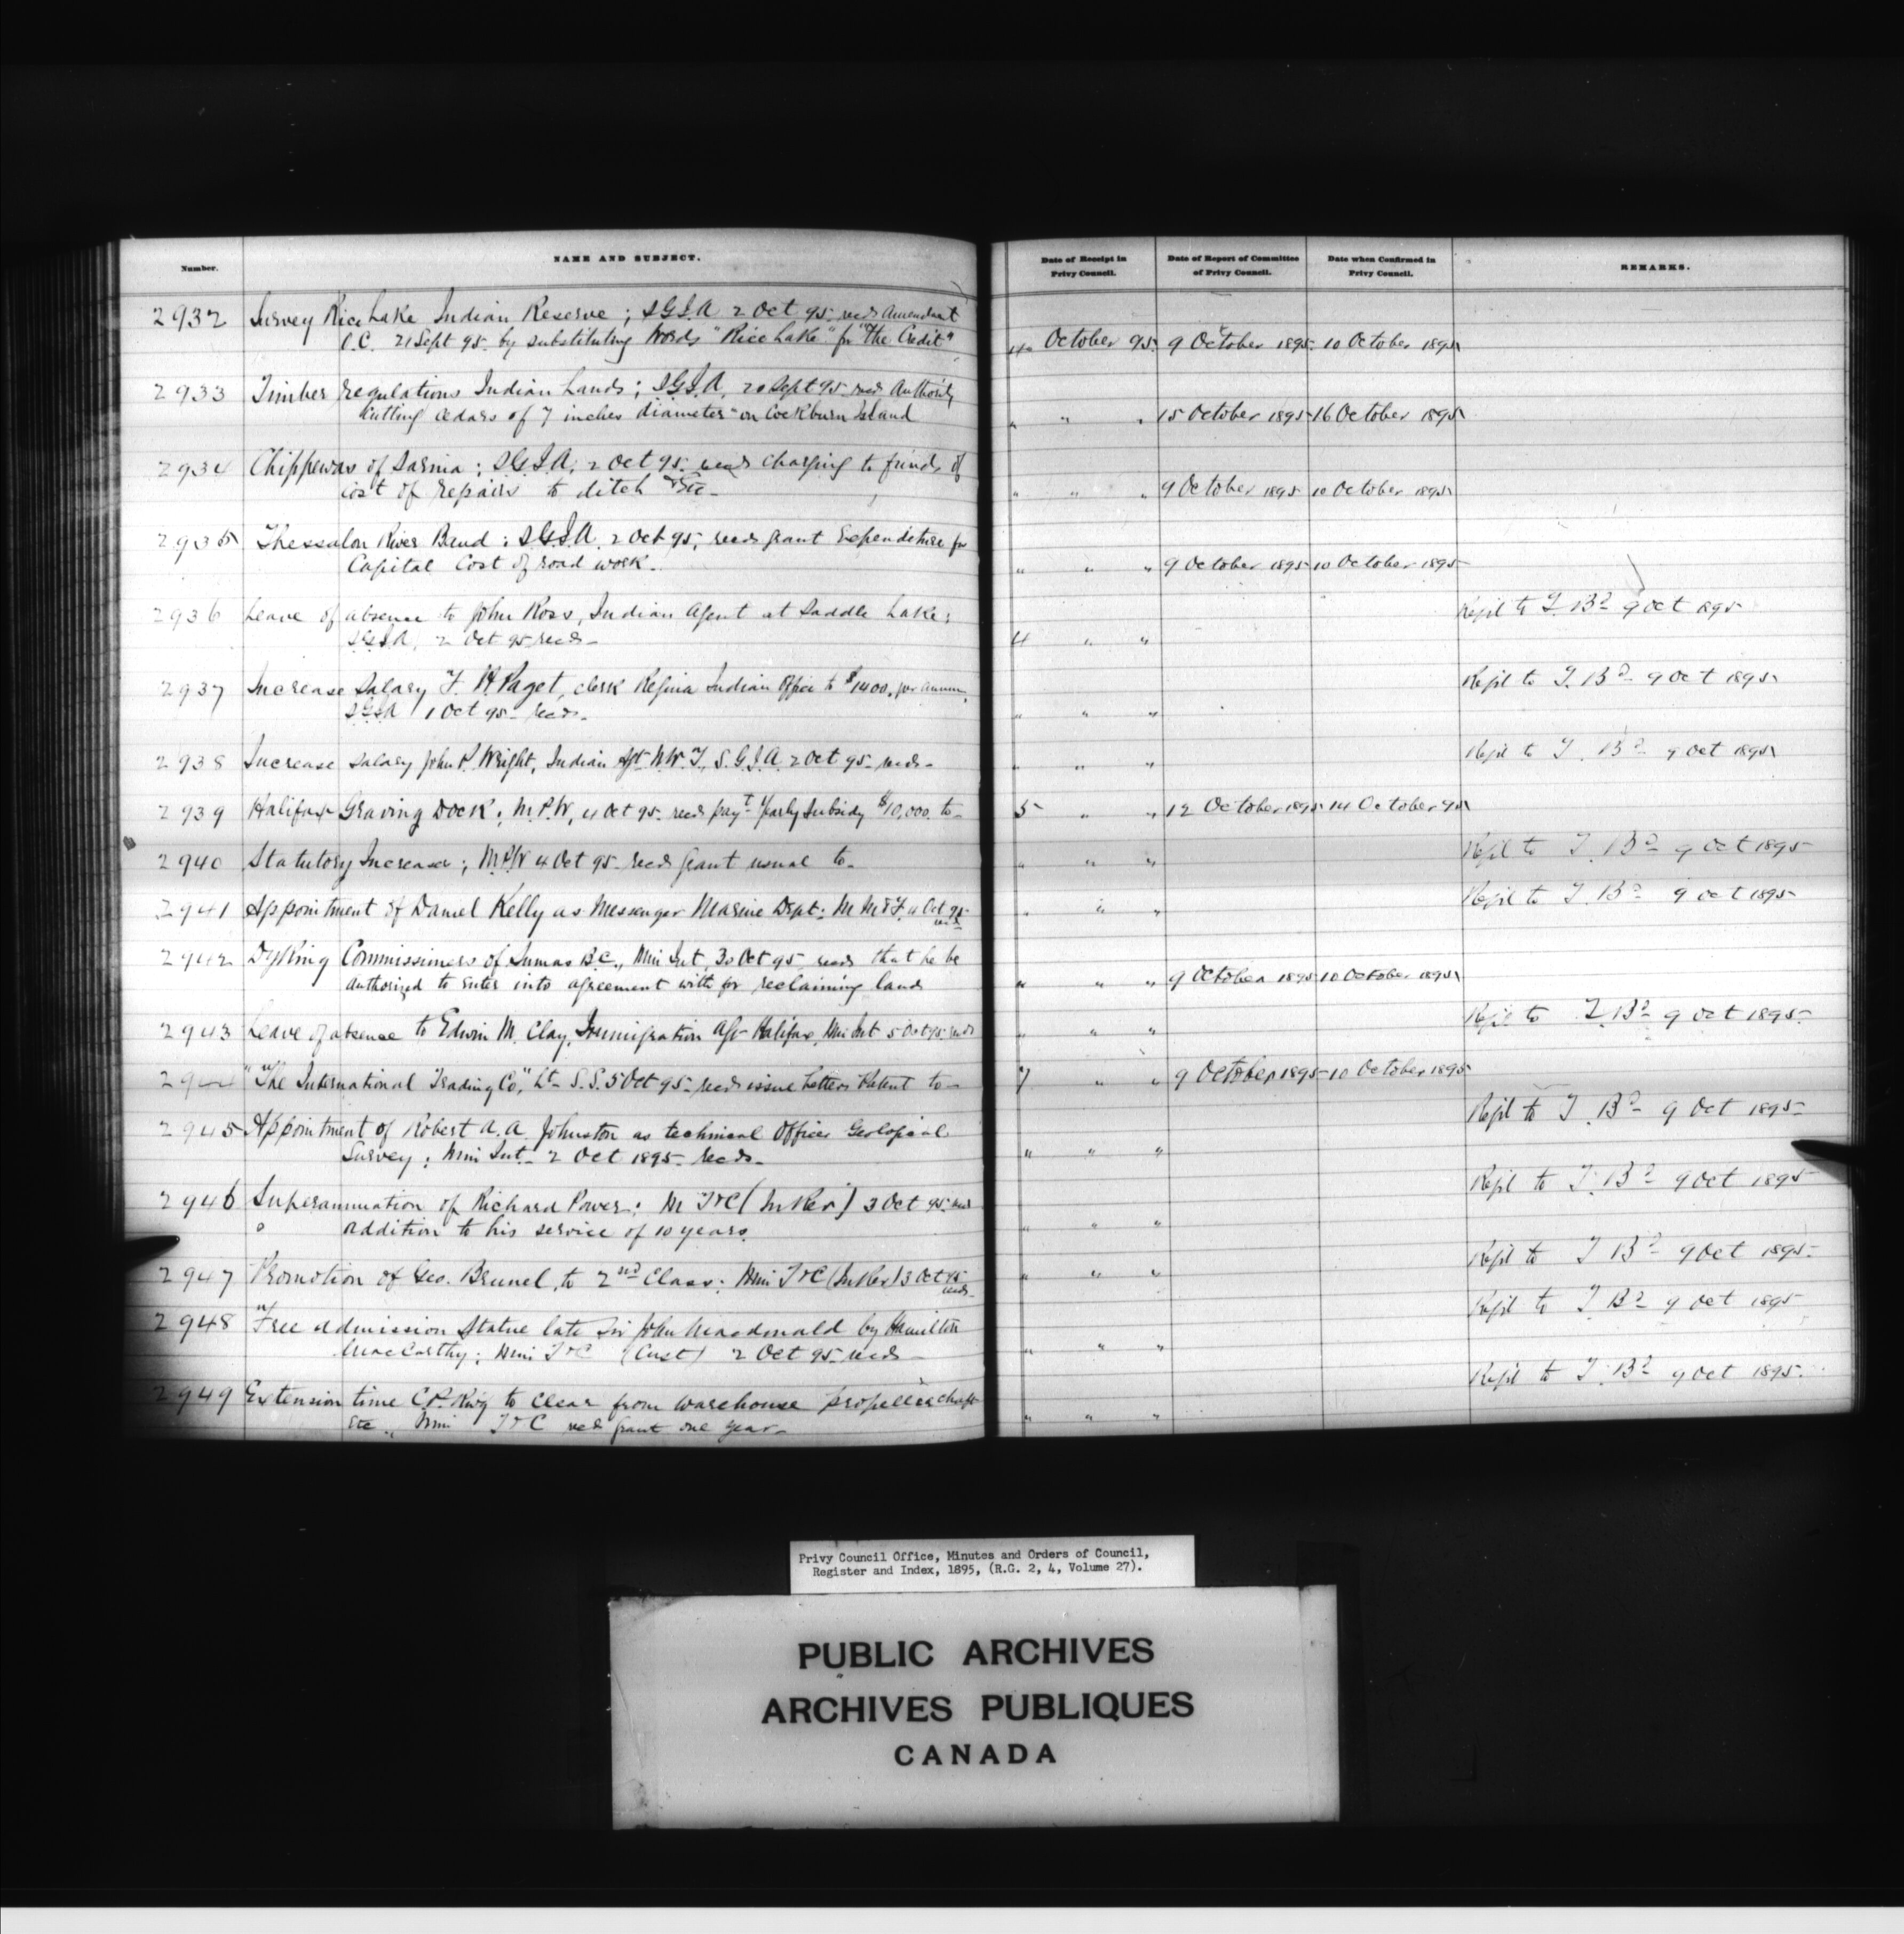 Number.
NAME AND SUBJECT.
Date of Receipt in Privy Council.
Date of Report of Committee of Privy Council.
Date when Confirmed in Privy Council.
REMARKS.
2932 Survey Rice Lake Indian Reserve; S.G.I.A. 2 Oct 95 recds Amendment
O.C. 21 Sept 95 by substituting words "Rice Lake" for "The Credit"
4 October 95 9 October 1895 10 October 1895
2933 Timber regulations Indian Lands; S.G.I.A. 20 Sept 95 recds Authority
Cutting cedars of 7 inches diameter on Cockburn Island
" " " 15 October 1895 16 October 1895
2934 Chippewas of Sarnia; S.G.I.A. 2 Oct 95 recds charging to funds of
Cost of repairs to ditch &c
" " " 9 October 1895 10 October 1895
2935 Thessalon River Band; S.G.I.A. 2 Oct 95, recds grant Expenditure for
Capital Cost of road work.
" " " 9 October 1895 10 October 1895
2936 Leave of absence to John Ross, Indian Agent at Saddle Lake;
S.G.I.A. 2 Oct 95 recds
4 " " Ref'd to T. Bd 9 Oct 1895
2937 Increase Salary F. H. Paget, clerk Regina Indian Office to $1400. per annum,
S.G.I.A 1 Oct 95 recds
" " " Ref'd to T. Bd 9 Oct 1895
2938 Increase Salary John P. Wright, Indian Agt N.W.T., S.G.I.A. 2 Oct 95 recds
" " " Ref'd to T. Bd 9 Oct 1895
2939 Halifax Graving Dock; M.P.W, 4 Oct 95 recds payt Yearly Subsidy $10,000. to
5 " " 12 October 1895 14 October 95
2940 Statutory Increases; M.P.W 4 Oct 95 recds grant usual to
" " " Ref'd to T. Bd 9 Oct 1895
2941 Appointment of Daniel Kelly as Messenger Marine Dept; M M & F. 4 Oct 95 recds
" " " Ref'd to T. Bd 9 Oct 1895
2942 Dyking Commissioners of Sumas B.C., Min Int, 30 Oct 95 recds that he be
authorized to enter into agreement with for reclaiming lands
" " " 9 October 1895 10 October 1895
2943 Leave of absence to Edwin M. Clay, Immigration Agt Halifax, Min Int 5 Oct 95 recds
" " " Ref'd to T. Bd 9 Oct 1895.
"The International Trading Co," Lt S.S. 5 Oct 95 recds issue Letters Patent to
7 " " 9 October 1895 10 October 1895
2945 Appointment of Robert A. A. Johnston as technical Officer Geological
Survey; Min Int 2 Oct 1895 recds
" " " Ref'd to T. Bd 9 Oct 1895
2946 Superannuation of Richard Power; M T&C (In Rev) 3 Oct 95 recds
addition to his service of 10 years.
" " " Ref'd to T. Bd 9 Oct 1895
2947 Promotion of Geo. Brunel, to 2nd Class; Min T&C (In Rev) 3 Oct 95 recds
" " " Ref'd to T Bd 9 Oct 1895
2948 Free admission Statue late Sir John Macdonald by Hamilton
MacCarthy; Min T&C (Cust) 2 Oct 95 recds
" " " Ref'd to T Bd 9 Oct 1895
2949 Extension time C.P. Rwy to clear from warehouse propeller shaft
etc., Min T&C recds grant one year
" " " Ref'd to T. Bd 9 Oct 1895.
Privy Council Office, Minutes and Orders of Council,
Register and Index, 1895, (R.G. 2, 4, Volume 27).
PUBLIC ARCHIVES
ARCHIVES PUBLIQUES
CANADA